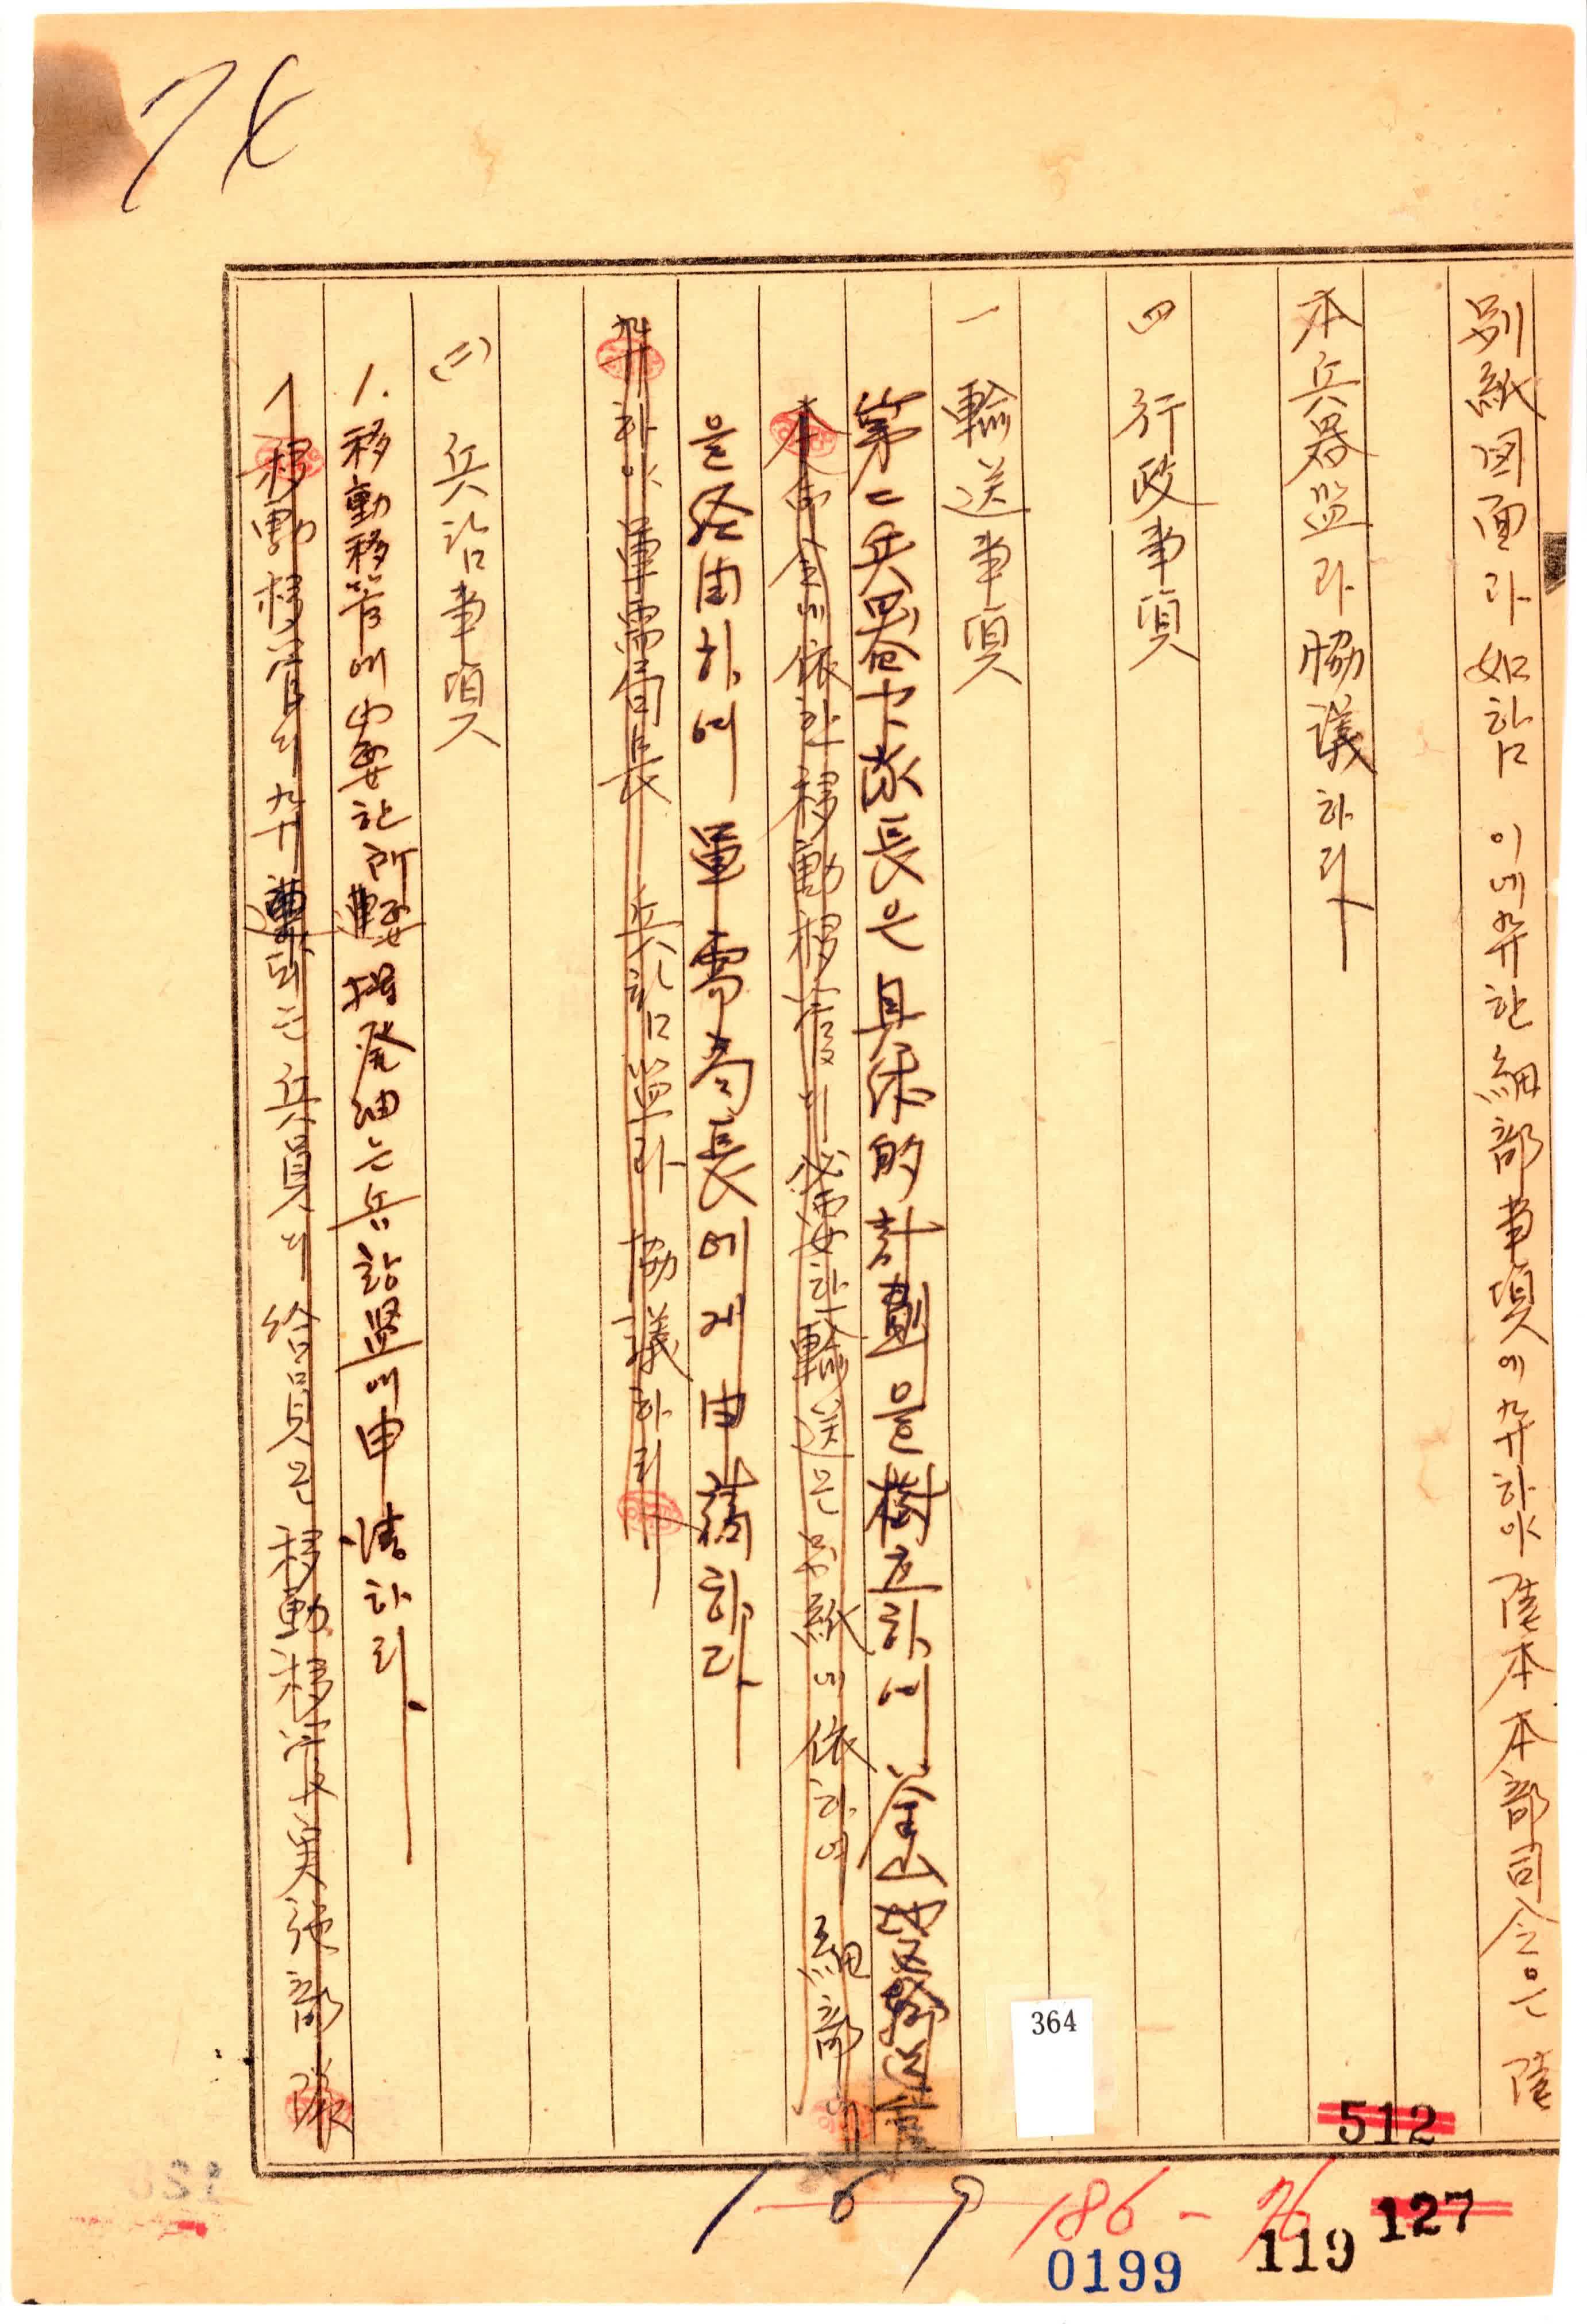 別紙図面과 如함 이에 弁한 細部事項에 弁하야 陸本本部司令은 陸
本兵器監과 協議하라
四 行政事項
一 輸送事項
第二兵器大隊長은 具体的 計劃을 樹立하여 釜山
本命令에 依한 移動移管에 必要한 輸送은 別紙에 依하며 細部에
을 経由하여 軍需局長에게 申請하라
弁하야 軍需局長 兵站監과 協議하라
(二) 兵站事項
1. 移動移管에 必要한 所要 揮発油는 兵站監에 申請하라
移動移管에 弁 遣되는 兵員의 給與은 移動移管 実施部隊
74
364
512
1 6 9
186 - 76
127
0199
119